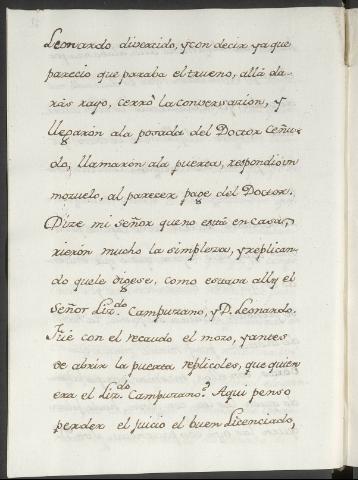 Leonardo divercido, y con decir ya que
parecio que paraba el trueno, allá da-
rás rayo, cerró la conversazion, y
llegaron ala posada del Doctor Ceñu-
do, llamaron ala puerta, respondio un
mozuelo, al parecer page del Doctor.
Dize mi señor que no está en casa,
rieron mucho la simpleza, y replican-
do que le digese, como estava alli el
Señor Liz.do Campuzano, y D. Leonardo.
Fué con el recaudo el mozo, y antes
de abrir la puerta replicoles, que quien
era el Liz.do Campuzano? Aqui penso
perder el juicio el buen Licenciado,